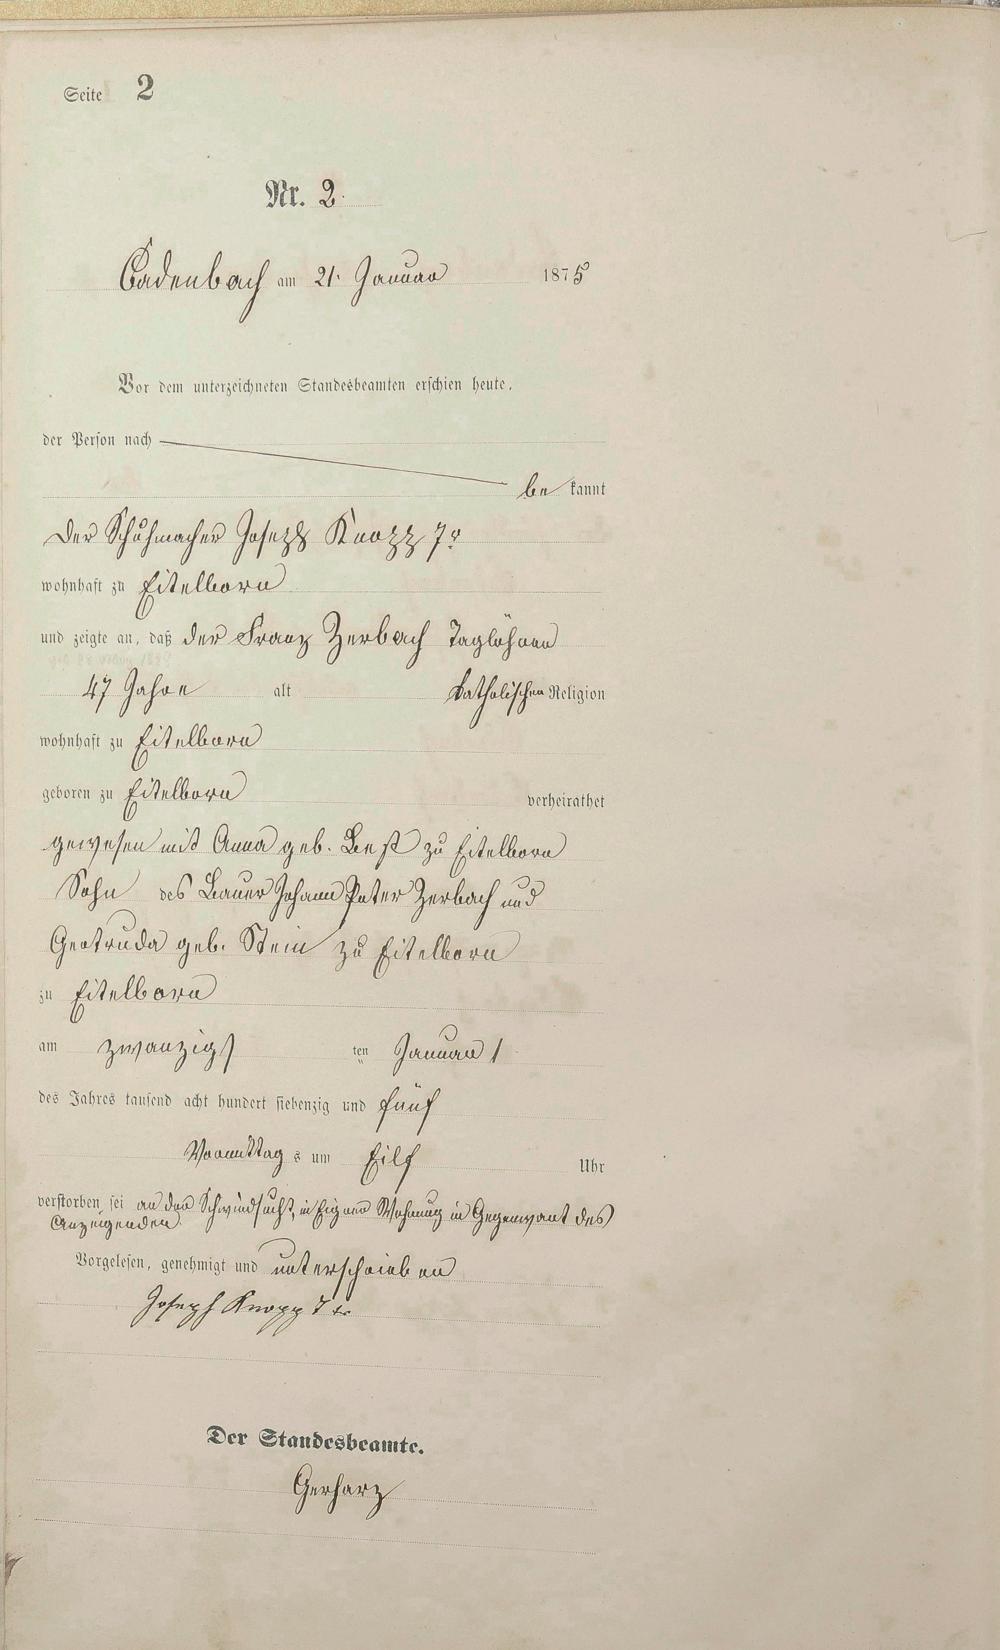 Seite 2
Nr. 2.
Cadenbach am 21. Januar 1875
Vor dem unterzeichneten Standesbeamten erschien heute,
der Person nach
be kannt
der Schuhmacher Joseph Knopp 7r
wohnhaft zu Eitelborn
und zeigte an, daß der Franz Zerbach Taglöhner
47 Jahre alt katholischer Religion
wohnhaft zu Eitelborn
geboren zu Eitelborn verheirathet
gewesen mit Anna geb. Best zu Eitelborn
Sohn des Bauer Johann Peter Zerbach und
Gertruda geb. Stein zu Eitelborn
zu Eitelborn
am zwanzigs ten Januar
des Jahres tausend acht hundert siebenzig und fünf
Vormittag s um Eilf Uhr
verstorben sei an der Schwindsucht, in Eigner Wohnung in Gegenwart des
Anzeigenden
Vorgelesen, genehmigt und unterschrieben
Joseph Knopp 7ter
Der Standesbeamte.
Gerharz